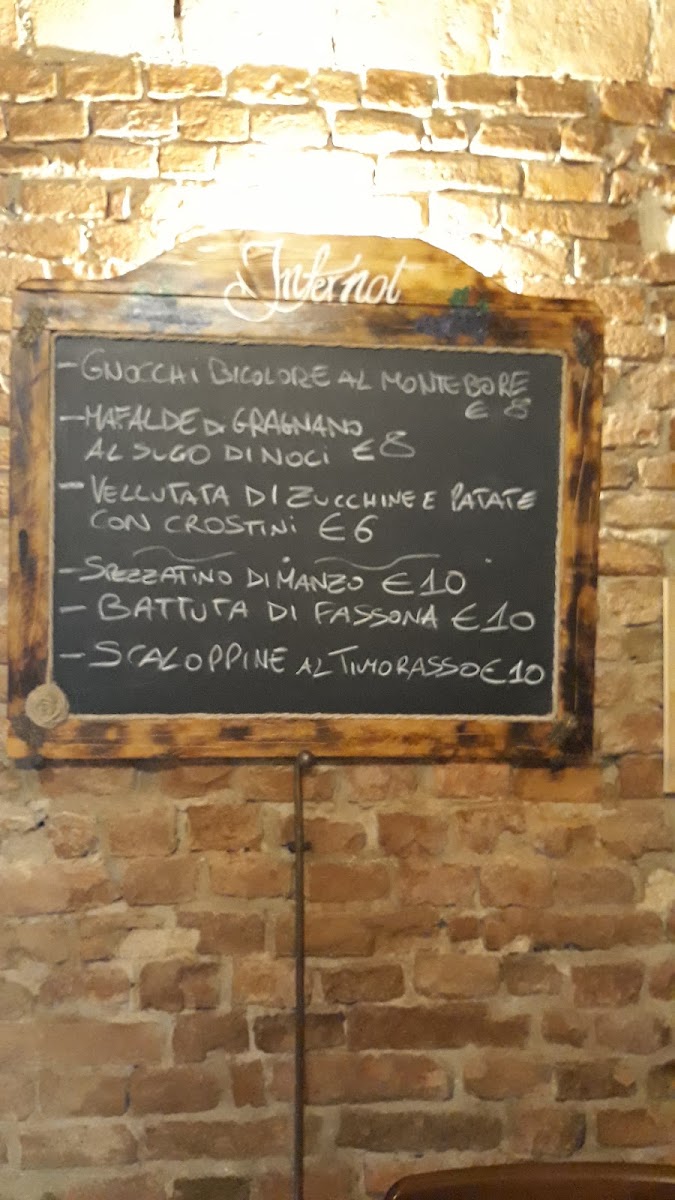 Infernot
- GNOCCHI BICOLORE AL MONTEBORE
€ 8
- MAFALDE DI GRAGNANO
AL SUGO DI NOCI €8
- VELLUTATA DI ZUCCHINE E PATATE
CON CROSTINI €6
- SPEZZATINO DI MANZO €10
- BATTUTA DI FASSONA €10
- SCALOPPINE AL TIMORASSO €10